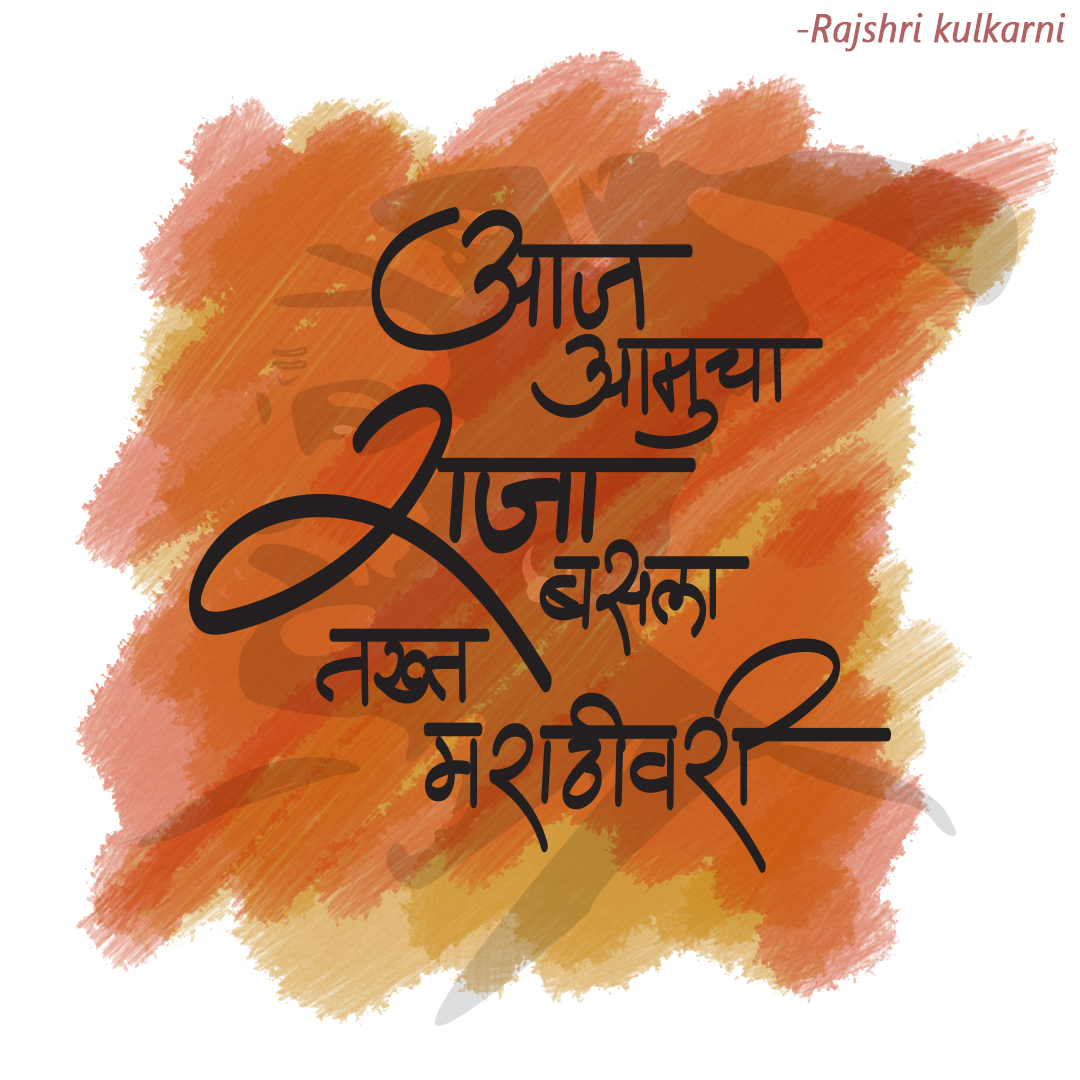 -Rajshri kulkarni
आज
आमुचा
राजा
बसला
तख्त
मराठीवरी